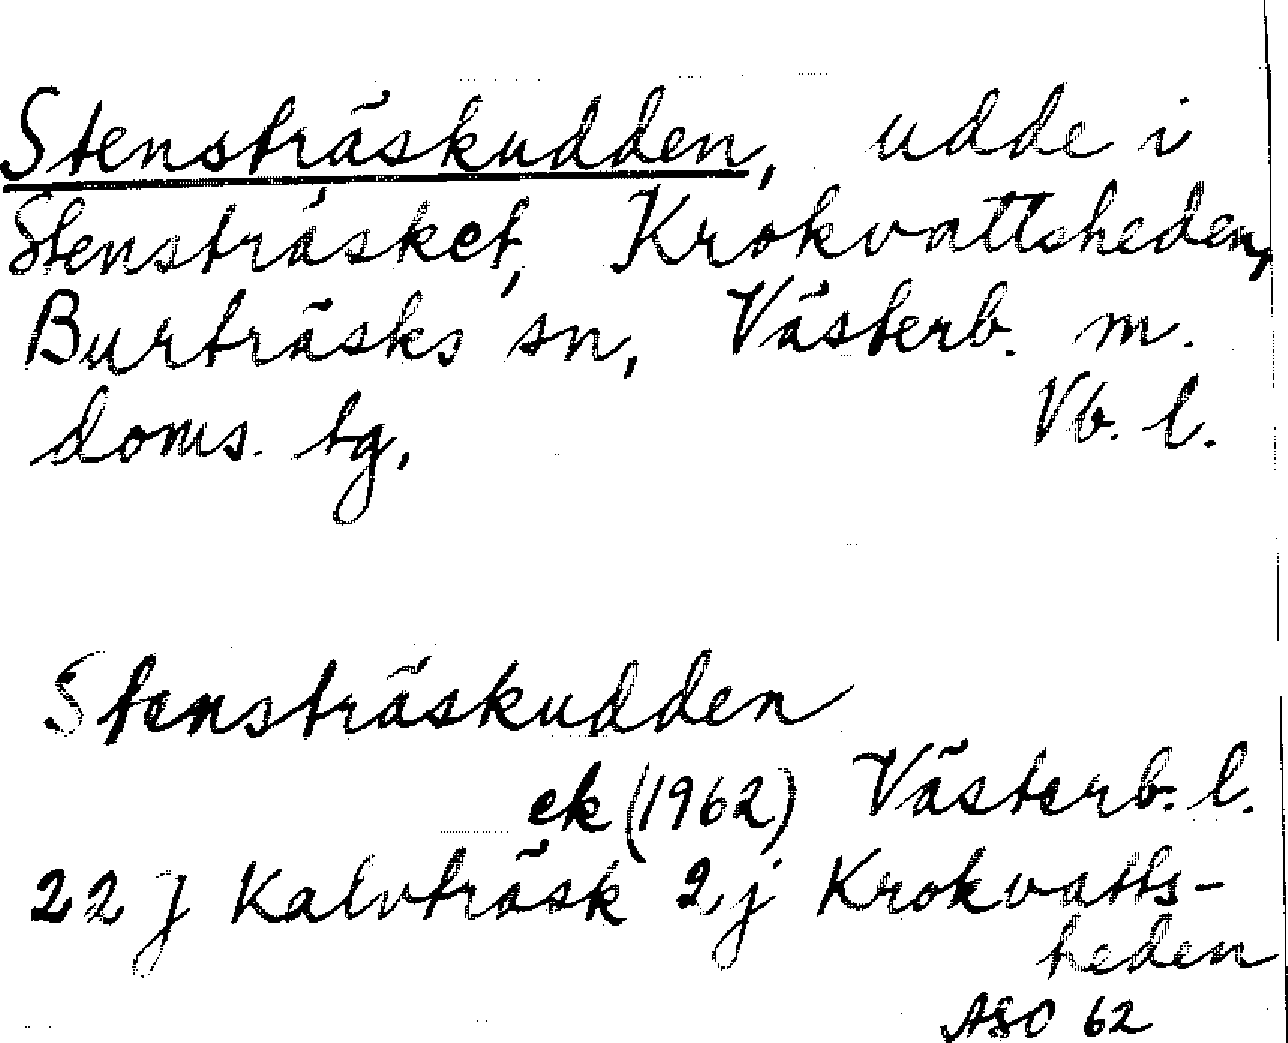 Stensträskudden, udde i
Stensträsket, Krokvattsheden,
Burträsks sn, Västerb. m.
doms. tg. Vb. l.
Stensträskudden
ek (1962) Västerb. l.
22 J Kalvträsk 2 j Krokvatts-
heden
ASO 62